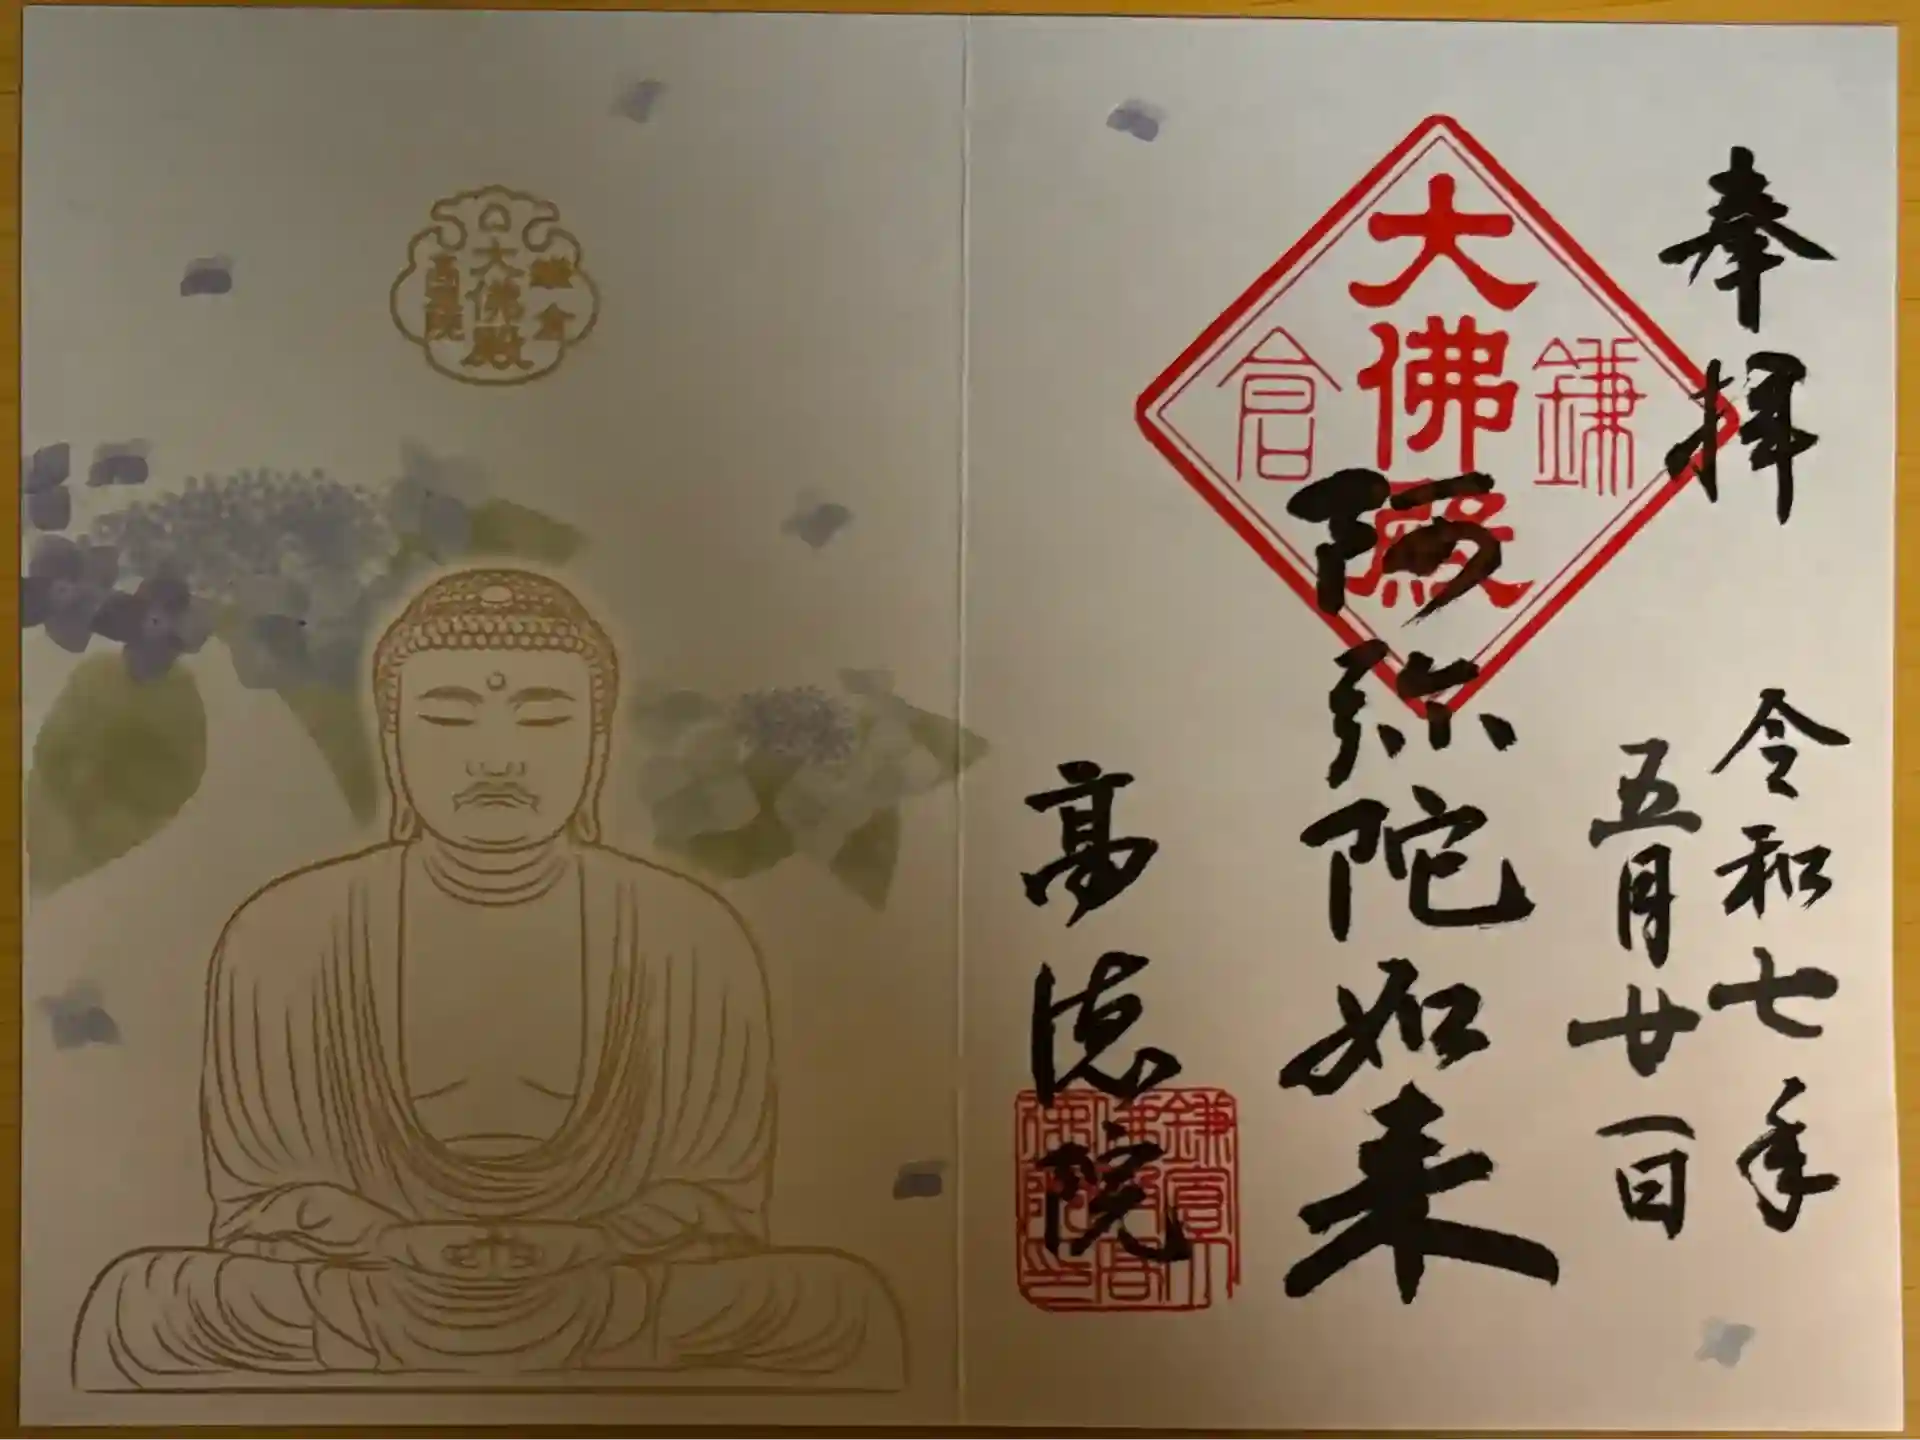 奉拝
令和七年
五月廿一日
鎌倉
大佛殿
阿弥陀如来
高徳院
鎌倉
大佛殿
高德院